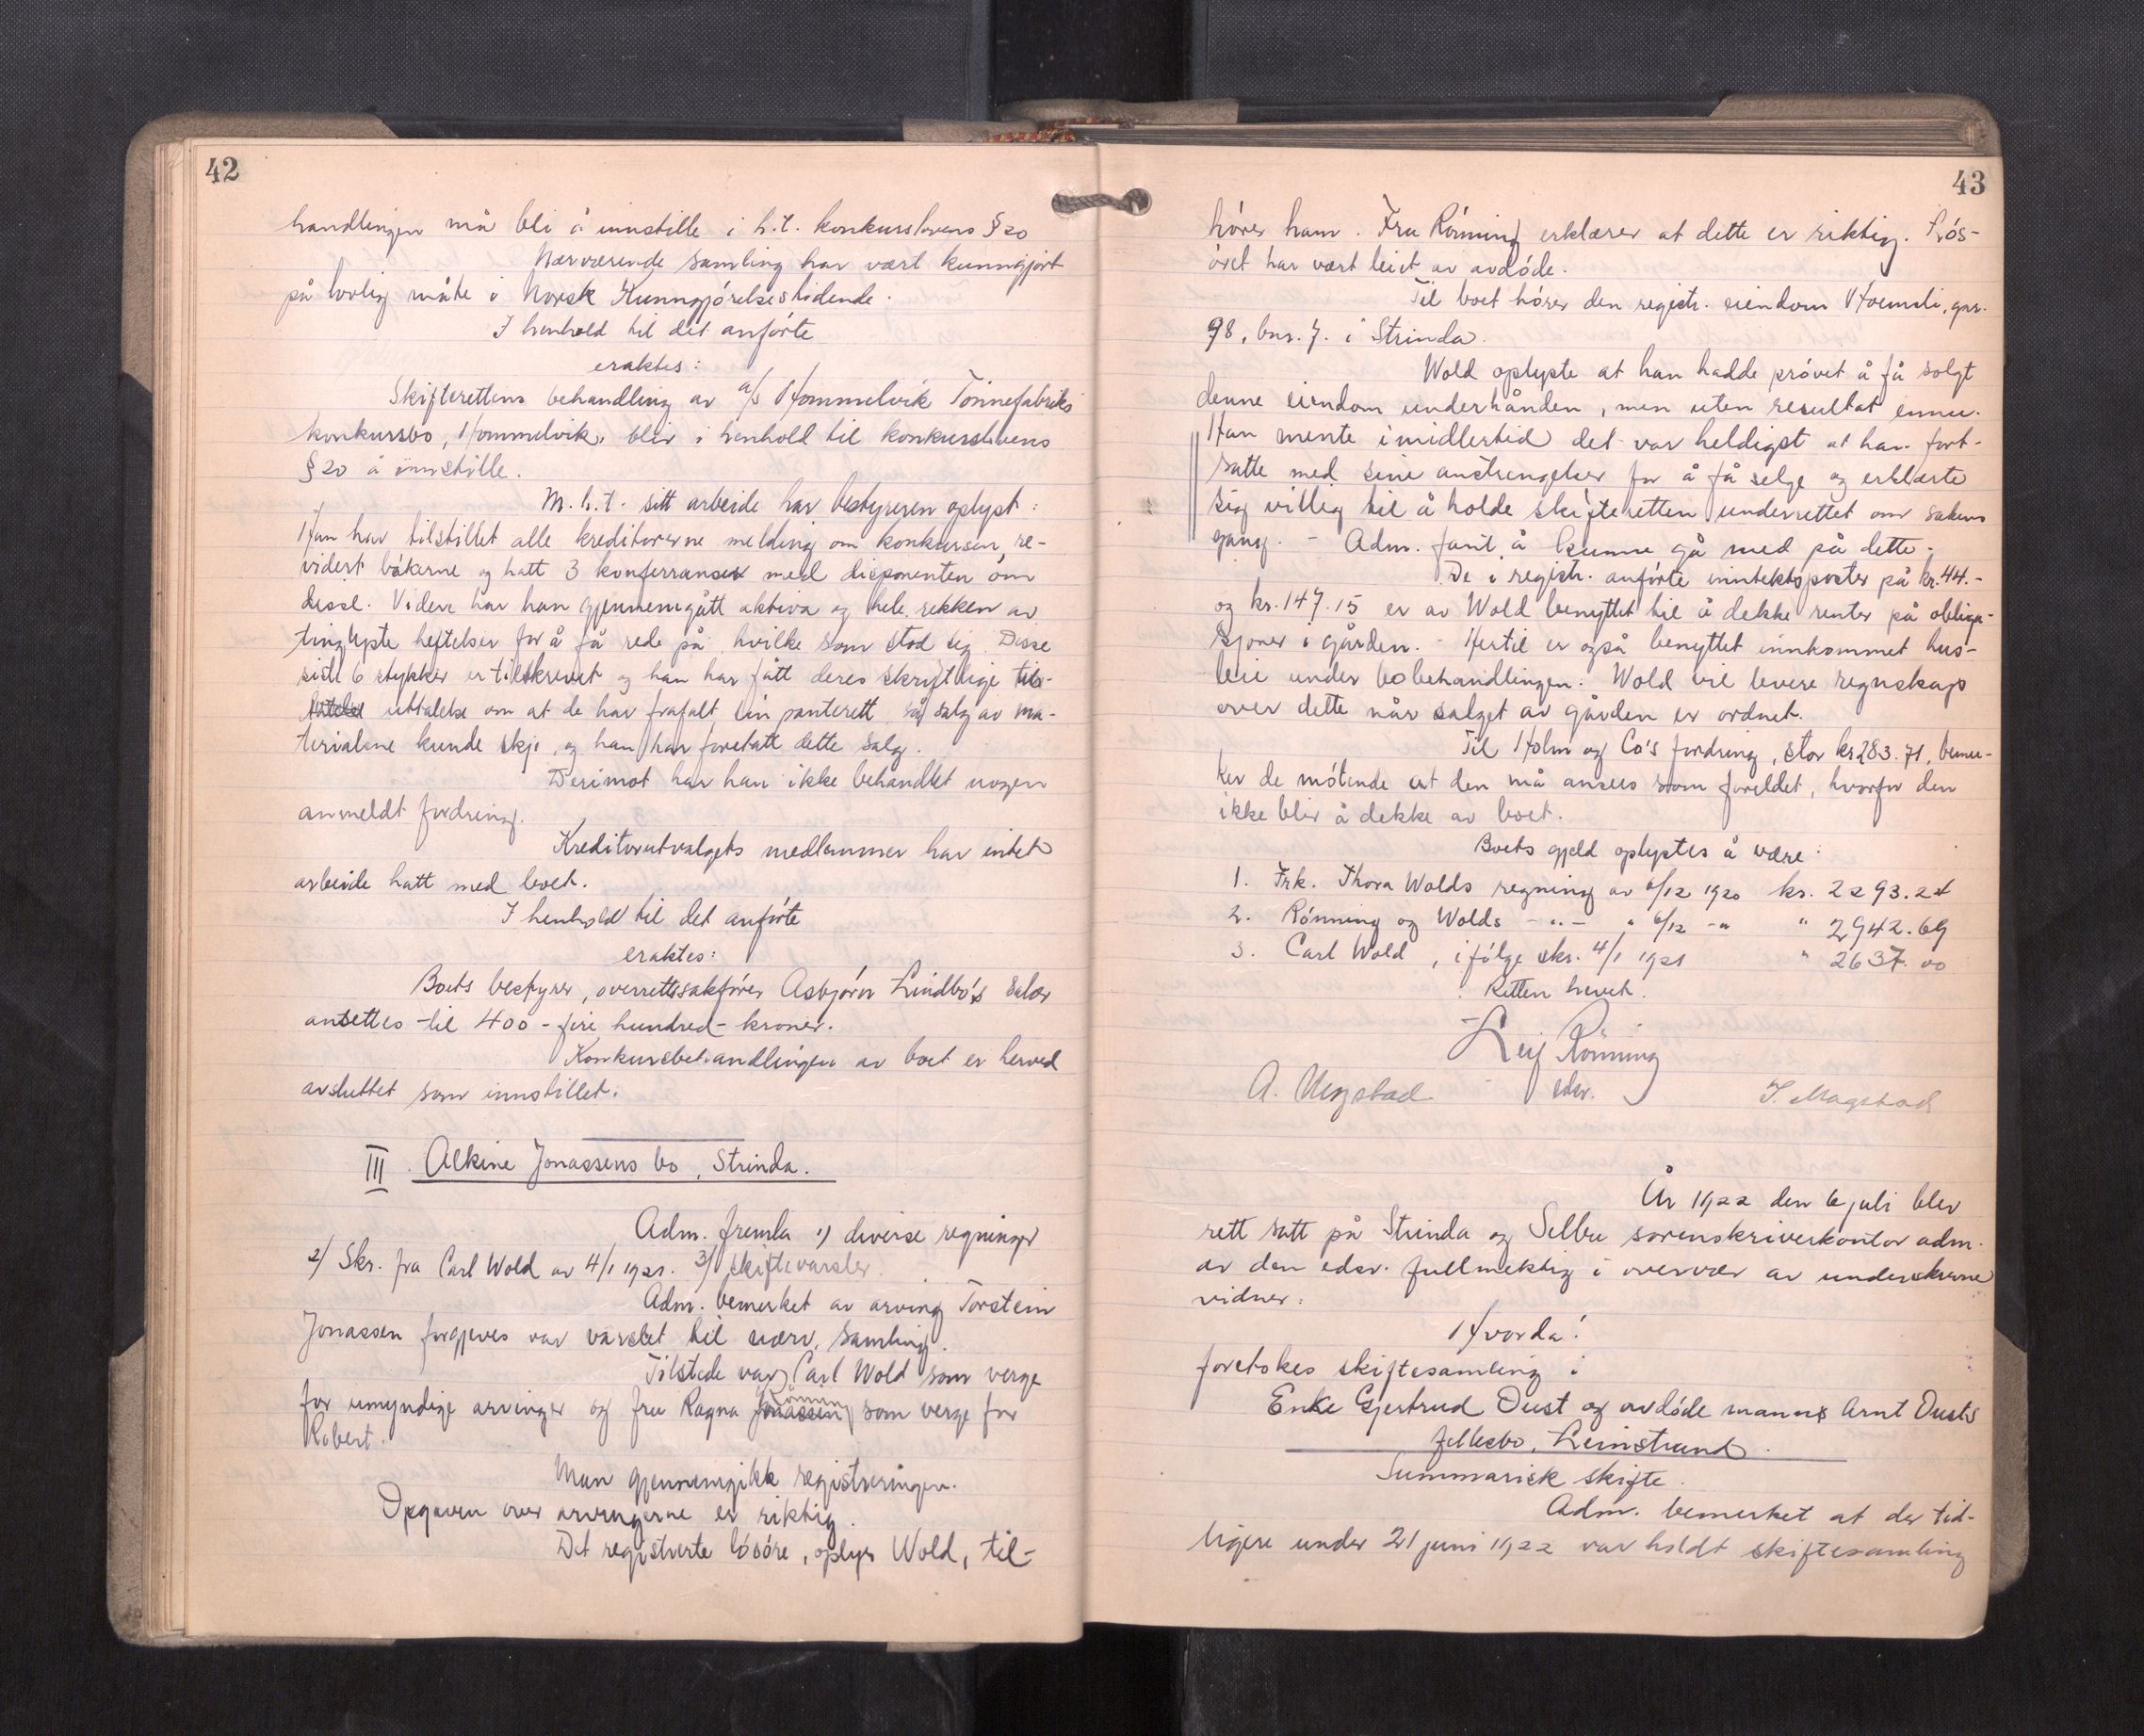 42
handlingen må bli å innstille i h.t. konkurslovens § 20
Nærværende samling har vært kunngjort
på lovlig måte i Norsk Kunngjørelsestidende.
I henhold til det anførte
eraktes:
Skifterettens behandling av a/s Hommelvik Tønnefabriks
konkursbo, Hommelvik, blir i henhold til konkurslovens
§ 20 å innstille.
M.h.t. sitt arbeide har bestyreren oplyst:
Han har tilstillet alle kreditorerne melding om konkursen, re-
vidert bøkerne og hatt 3 konferranser med disponenten om
disse. Videre har han gjennemgått aktiva og hele rekken av
tinglyste heftelser for å få rede på hvilke som stod sig. Disse
siste 6 stykker er tilskrevet og han har fått deres skriftlige
uttalelse om at de har frafalt sin panterett, så salg av ma-
terialene kunde skje, og han har foretatt dette salg.
Derimot har han ikke behandlet nogen
anmeldt fordring.
Kreditorutvalgets medlemmer har intet
arbeide hatt med boet.
I henhold til det anførte
eraktes:
Boets bestyrer, overrettssakfører Asbjørn Lindbo's salær
ansettes til 400 - fire hundred - kroner.
Konkursbehandlingen av boet er herved
avsluttet som innstillet.
III. Alkine Jonassens bo, Strinda.
Adm. fremla 1) diverse regninger
2) Skr. fra Carl Wold av 4/1 1921. 3) skiftevarsler.
Adm. bemerket av arving Torstein
Jonassen forgjeves var varslet til nærv. samling.
Tilstede var Carl Wold som verge
for umyndige arvinger og fru Ragna Jonassen Rønning som verge for
Robert.
Man gjennemgikk registreringen.
Opgaven over arvingerne er riktig.
Det registrerte løsøre, oplyser Wold, til-
43
hører ham. Fru Rønning erklærer at dette er riktig. Løs-
øret har vært leiet av avdøde.
Til boet hører den registr. eiendom Hoemsli, gnr.
98, bnr. 7. i Strinda.
Wold oplyste at han hadde prøvet å få solgt
denne eiendom underhånden, men uten resultat ennu.
Han mente imidlertid det var heldigst at han fort-
satte med sine anstrengelser for å få selge og erklærte
sig villig til å holde skifteretten underrettet om sakens
gang. - Adm. fant å kunne gå med på dette.
De i registr. anførte inntektsposter på kr. 44.-
og kr. 147.15 er av Wold benyttet til å dekke renter på obliga-
sjoner i gården. - Hertil er også benyttet innkommet hus-
leie under bobehandlingen. Wold vil levere regnskap
over dette når salget av gården er ordnet.
Til Holm og Co's fordring, stor kr. 283.71, bemer-
ker de møtende at den må ansees som foreldet, hvorfor den
ikke blir å dekke av boet.
Boets gjeld oplystes å være:
1. Frk. Thora Wolds regning av 6/12 1920 kr. 2293.24
2. Rønning og Wolds -"- " 6/12 -" " 2942.69
3. Carl Wold, ifølge skr. 4/1 1921 " 2637.00
Retten hevet.
Leif Rønning
edsv.
A. Ugstad
I. Magstad
År 1922 den 6 juli blev
rett satt på Strinda og Selbu sorenskriverkontor adm.
av den edsv. fullmektig i overvær av underskrevne
vidner:
Hvorda!
foretokes skiftesamling i
Enke Gjertrud Dust og avdøde manns Arnt Dusts
fellesbo, Leinstrand.
Summarisk skifte.
Adm. bemerket at der tid-
ligere under 21 juni 1922 var holdt skiftesamling